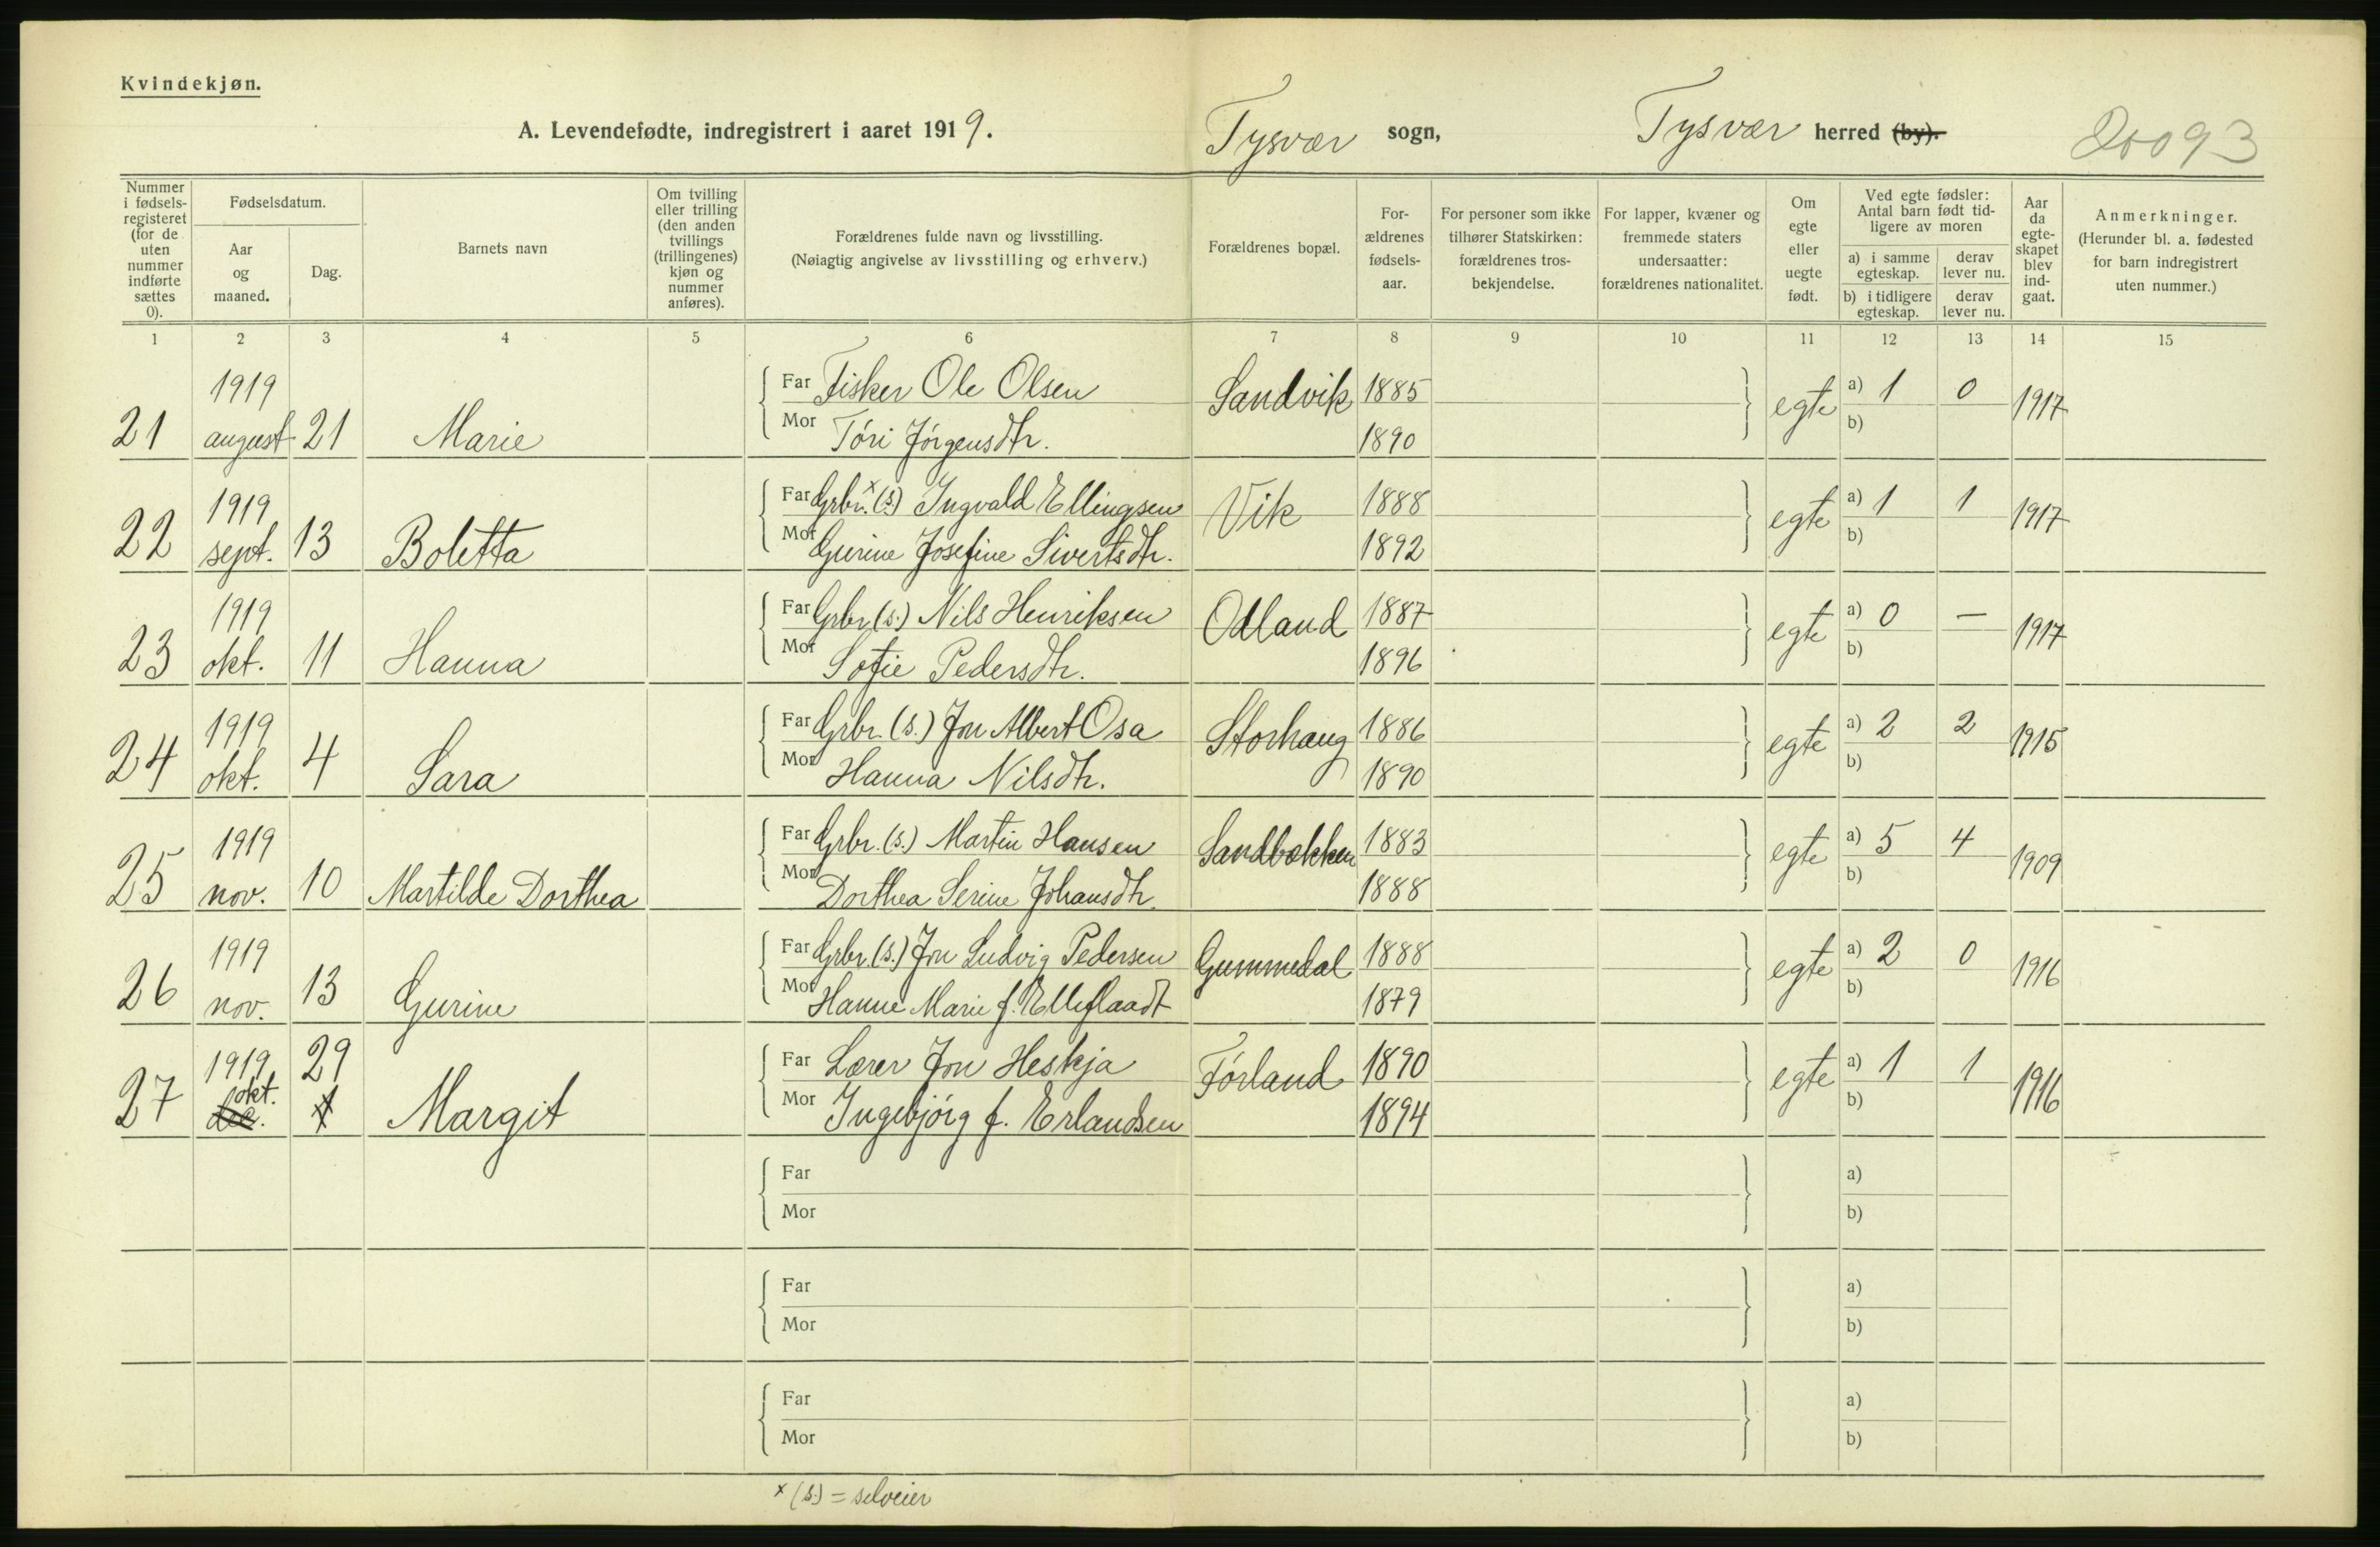 Kvindekjøn.
A. Levendefødte, indregistrert i aaret 1919. Tysvær sogn, Tysvær herred (by).
Nummer i fødselsregisteret (for de uten nummer indførte sættes 0).
Fødselsdatum.
Aar og maaned.
Dag.
Barnets navn
Om tvilling eller trilling (den anden tvillings (trillingenes) kjøn og nummer anføres).
Forældrenes fulde navn og livsstilling.
(Nøiagtig angivelse av livsstilling og erhverv.)
Forældrenes bopæl.
Forældrenes fødselsaar.
For personer som ikke tilhører Statskirken: forældrenes trosbekjendelse.
For lapper, kvæner og fremmede staters undersaatter: forældrenes nationalitet.
Om egte eller uegte født.
Ved egte fødsler: Antal barn født tidligere av moren
a) i samme egteskap. derav lever nu.
b) i tidligere egteskap. derav lever nu.
Aar da egteskapet blev indgaat.
Anmerkninger.
(Herunder bl. a. fødested for barn indregistrert uten nummer.)
1 2 3 4 5 6 7 8 9 10 11 12 13 14 15
21 1919 august 21 Marie Far Fisker Ole Olsen Sandvik 1885 egte a) 1 0 1917
Mor Tóri Jórgensdtr. 1890 b)
22 1919 sept. 13 Boletta Far Grbr.x (s.) Ingvald Ellingsen Vik 1888 egte a) 1 1 1917
Mor Gurine Josefine Sivertsdtr. 1892 b)
23 1919 okt. 11 Hanna Far Grbr (s.) Nils Henriksen Odland 1887 egte a) 0 — 1917
Mor Sofie Pedersdtr. 1896 b)
24 1919 okt. 4 Sara Far Grbr. (s.) Jon Albert Osa Storhaug 1886 egte a) 2 2 1915
Mor Hanna Nilsdtr. 1890 b)
25 1919 nov. 10 Martilde Dorthea Far Grbr. (s.) Martin Hansen Sandbekken 1883 egte a) 5 4 1909
Mor Dorthea Serine Johansdtr. 1888 b)
26 1919 nov. 13 Gurine Far Grbr. (s.) Jon Ludvig Pedersen Gummedal 1888 egte a) 2 0 1916
Mor Hanne Marie f. Elleflaadt 1879 b)
27 1919 okt. dec. 29 Margit Far Lærer Jon Heskja Fórland 1890 egte a) 1 1 1916
Mor Ingebjórg f. Erlandsen 1894 b)
Far a)
Mor b)
Far a)
Mor b)
Far a)
Mor b)
x (s.) = selveier